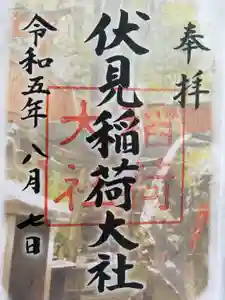 奉拝
伏見稲荷大社
稲荷
大社
令和五年八月七日